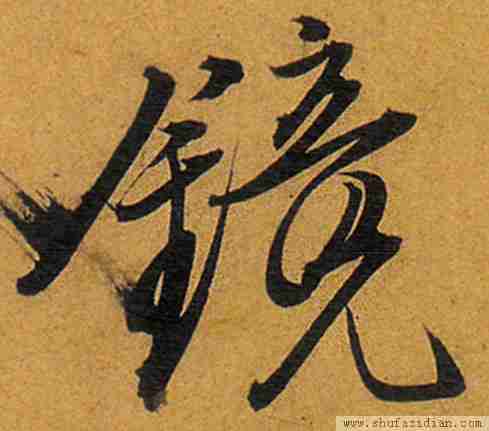 鏡
www.shufazidian.com